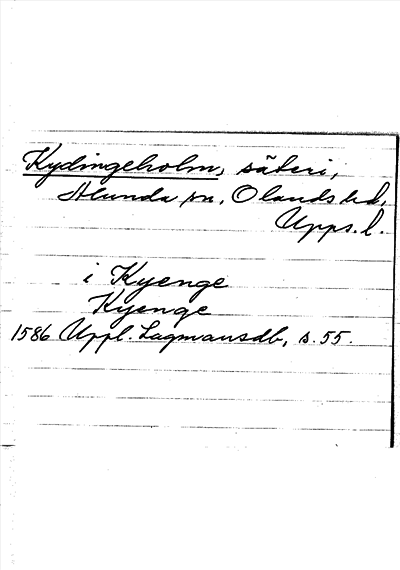 Kydingeholm, säteri,
Alunda sn, Olands hd,
Upps. l.
i Kyenge
Kyenge
1586 Uppl. Lagmansdb, s. 55.